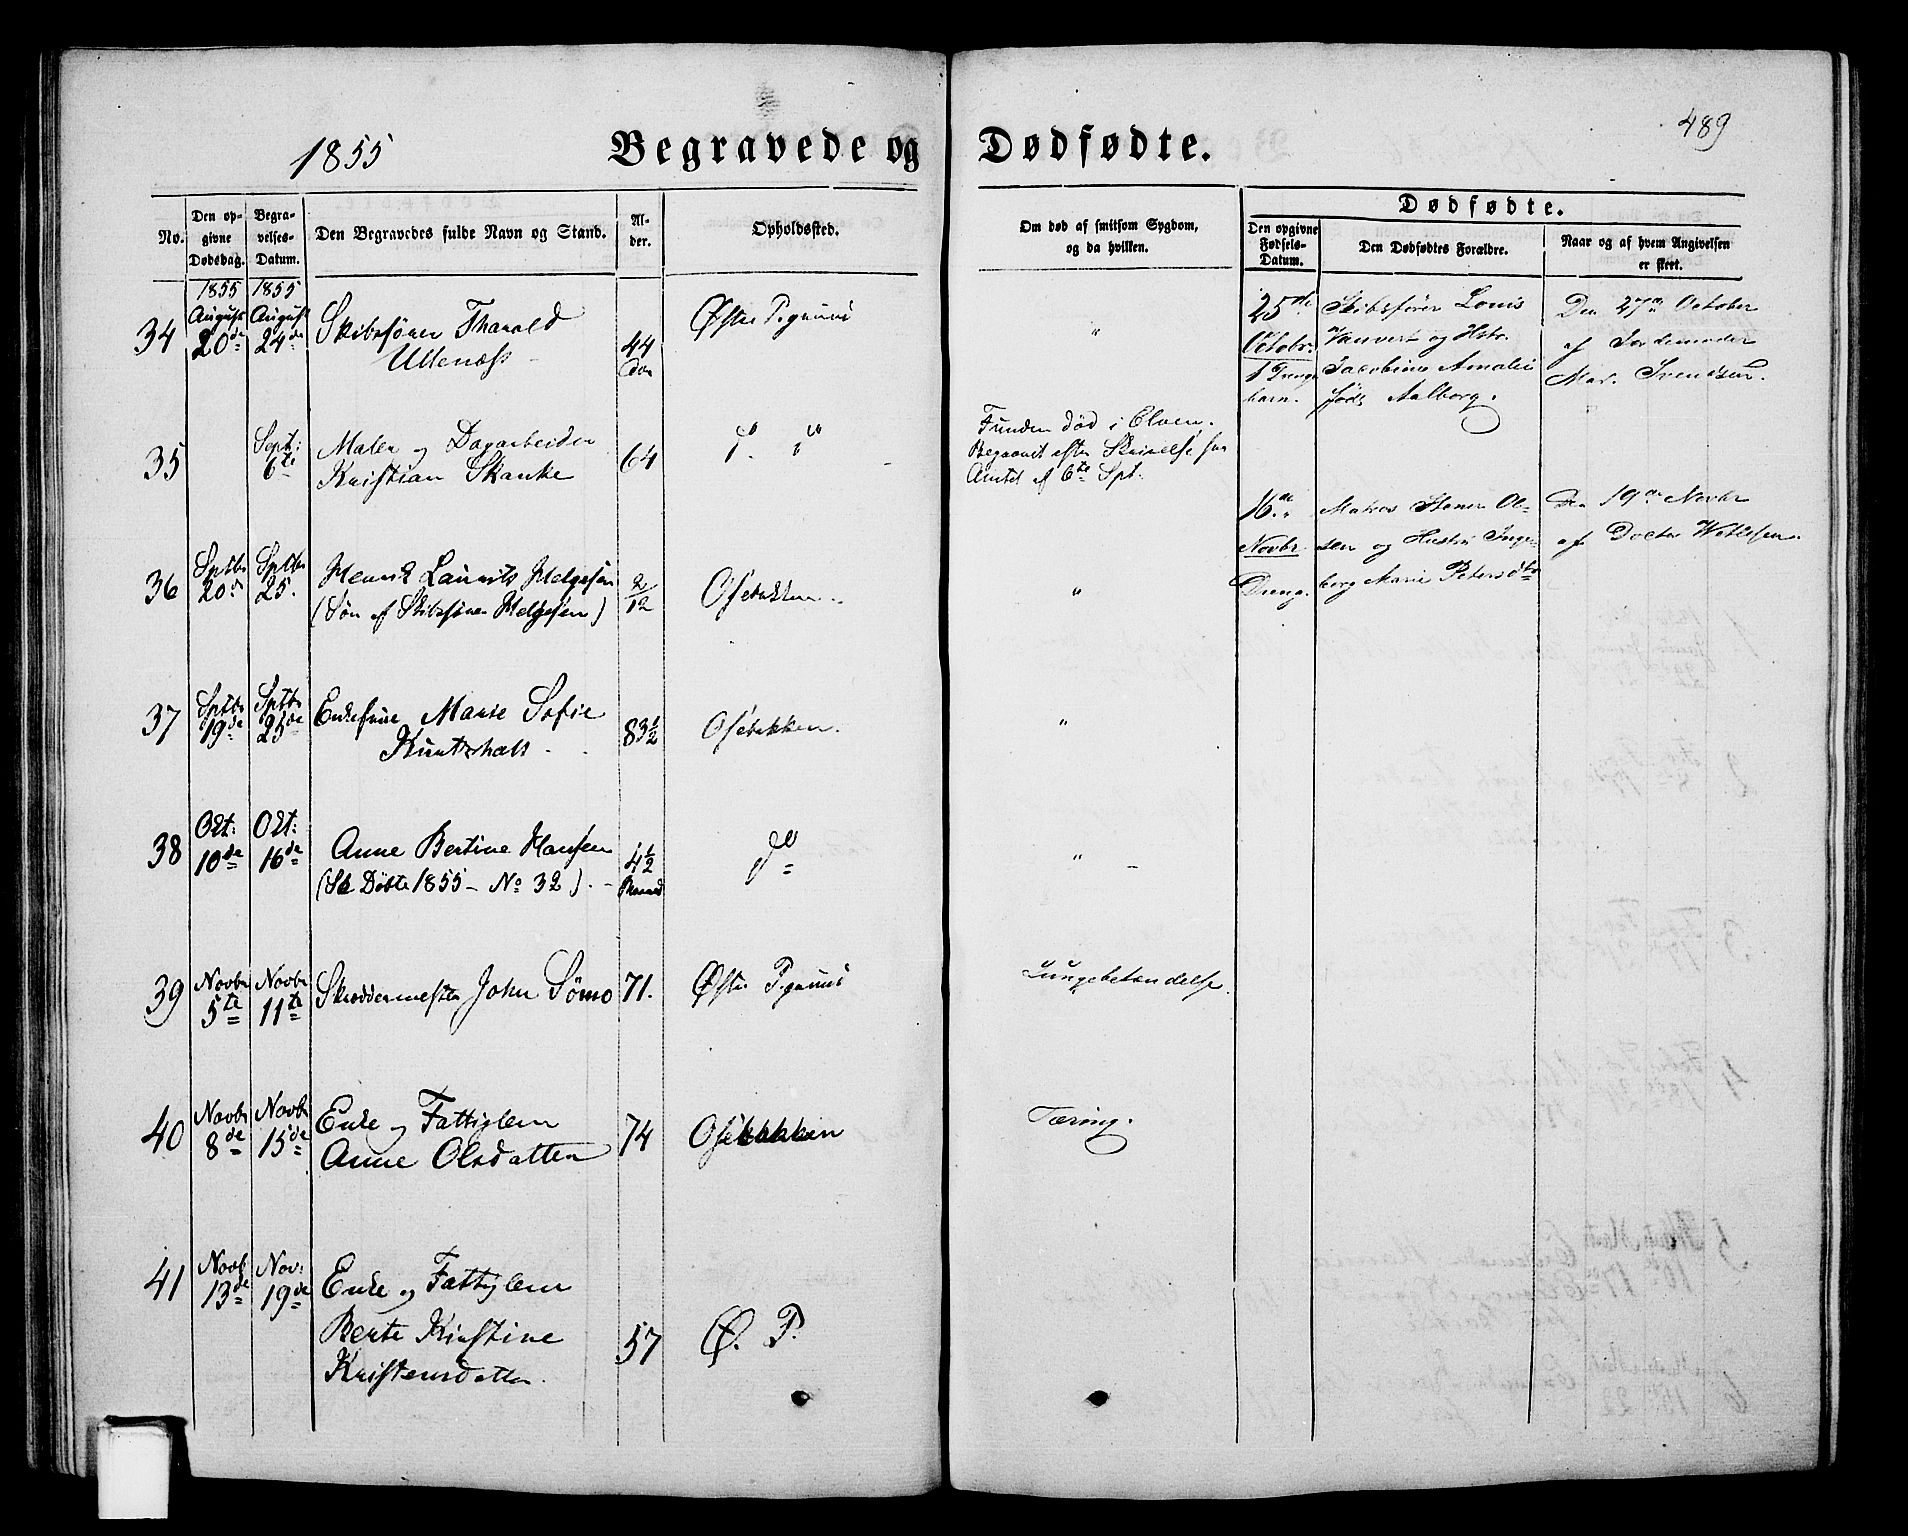 489
1855
Begravede og Dødfødte.
No.
Den opgivne Dødsdag.
Begravelses-Datum.
Den Begravedes fulde Navn og Stand.
Alder.
Opholdssted.
Om død af smitsom Sygdom, og da hvilken.
Dødfødte.
Den opgivne Fødsels-Datum.
Den Dødfødtes Forældre.
Naar og af hvem Angivelsen er skeet.
1855 1855
34 August 20de August 24de Skibsfører Tharald
Ullenæss 44 Østre P.grund "
35 Sept: 6te Maler og Dagarbeider
Kristian Skanke 64 do "
Funden død i Elven.
Begravet efter Skrivelse fra
Amtet af 6te Spt.
36 Sptbr 20de Sptbr 25. Henrik Laurits Helgesen
(Søn af Skibsfører Helgesen) 2/12 Osebakken. "
37 Sptbr 19de Sptbr 25de Enkefrue Marie Sofie
83½ Osebakken. "
38 Okt: 10de Okt: 16de Anne Bertine Hansen
(Se Døbte 1855 – No 32). – 4½ Maaned do "
39 Novbr 5te Novbr 11te Skreddermester John Sømo 71. Østre P.grund Lungebetændelse.
40 Novbr 8de Novbr 15de Enke og Fattiglem
Anne Olsdatter 74 Osebakken Tæring.
41 Novb 13de Nov: 19de Enke og Fattiglem
Berte Kirstine
Kristensdatter. 57 Ø. P.
25de Skibsfører Louis Den 27de October
Octobr. og Hstr. af Jordemoder
1 Drenge Jacobine Amalie Mad. Svendsen.
barn. født Aalborg.
16de Matros Stener Ol- Den 19de Novbr
Novbr. sen og Hustru Inge- af Doctor
Dreng. borg Marie Petersdtr